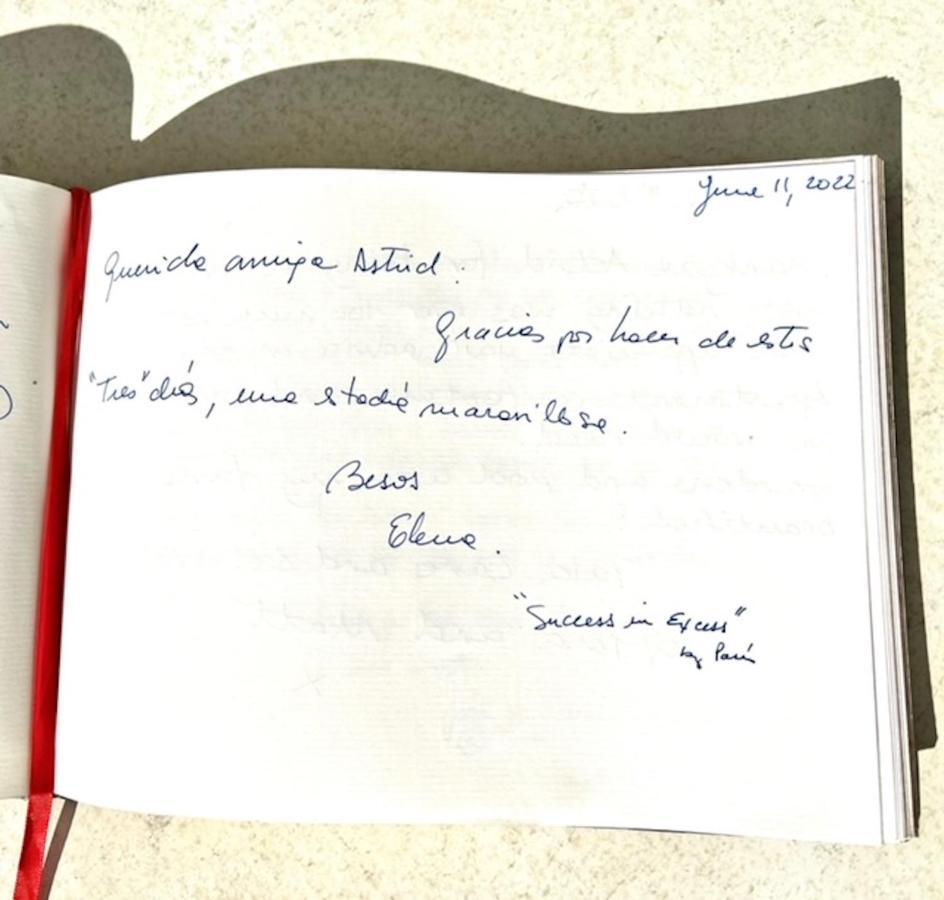 June 11, 2022
Querida amiga Astrid.
Gracias por hacer de estos
"Tres" días, una stadía maravillosa.
Besos
Elena.
"Success in Excess"
by